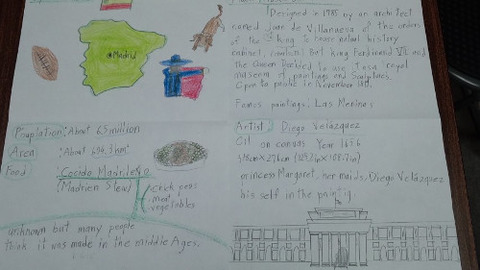 Madrid
Designed in 1785 by an architect
named Joan de Villanueva of the orders
king to cover natural history
cabinet, but king Ferdinand VII and
the Queen Decided to use it as a royal
museum of paintings and Sculptures.
Open to public in November 1819.
Famos paintings: Las Meninas
Population: About 6.5 million
Area : About
Food : Cocido Madrileño
(Madrien Stew)
chick peas
meat
vegetables
unknown but many people
think it was made in the middle Ages.
Artist: Diego Velázquez
Oil on canvas Year 1656
princess Margaret, her maids, Diego Velázquez
his self in the painting.